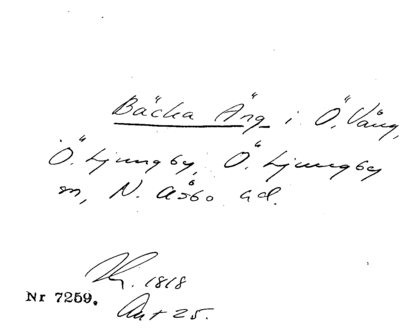 Bäcka Äng i Ö. Vång,
Ö. Ljungby, Ö. Ljungby
sn, N. Åsbo hd.
1818
Nr 7259.
Akt 25.